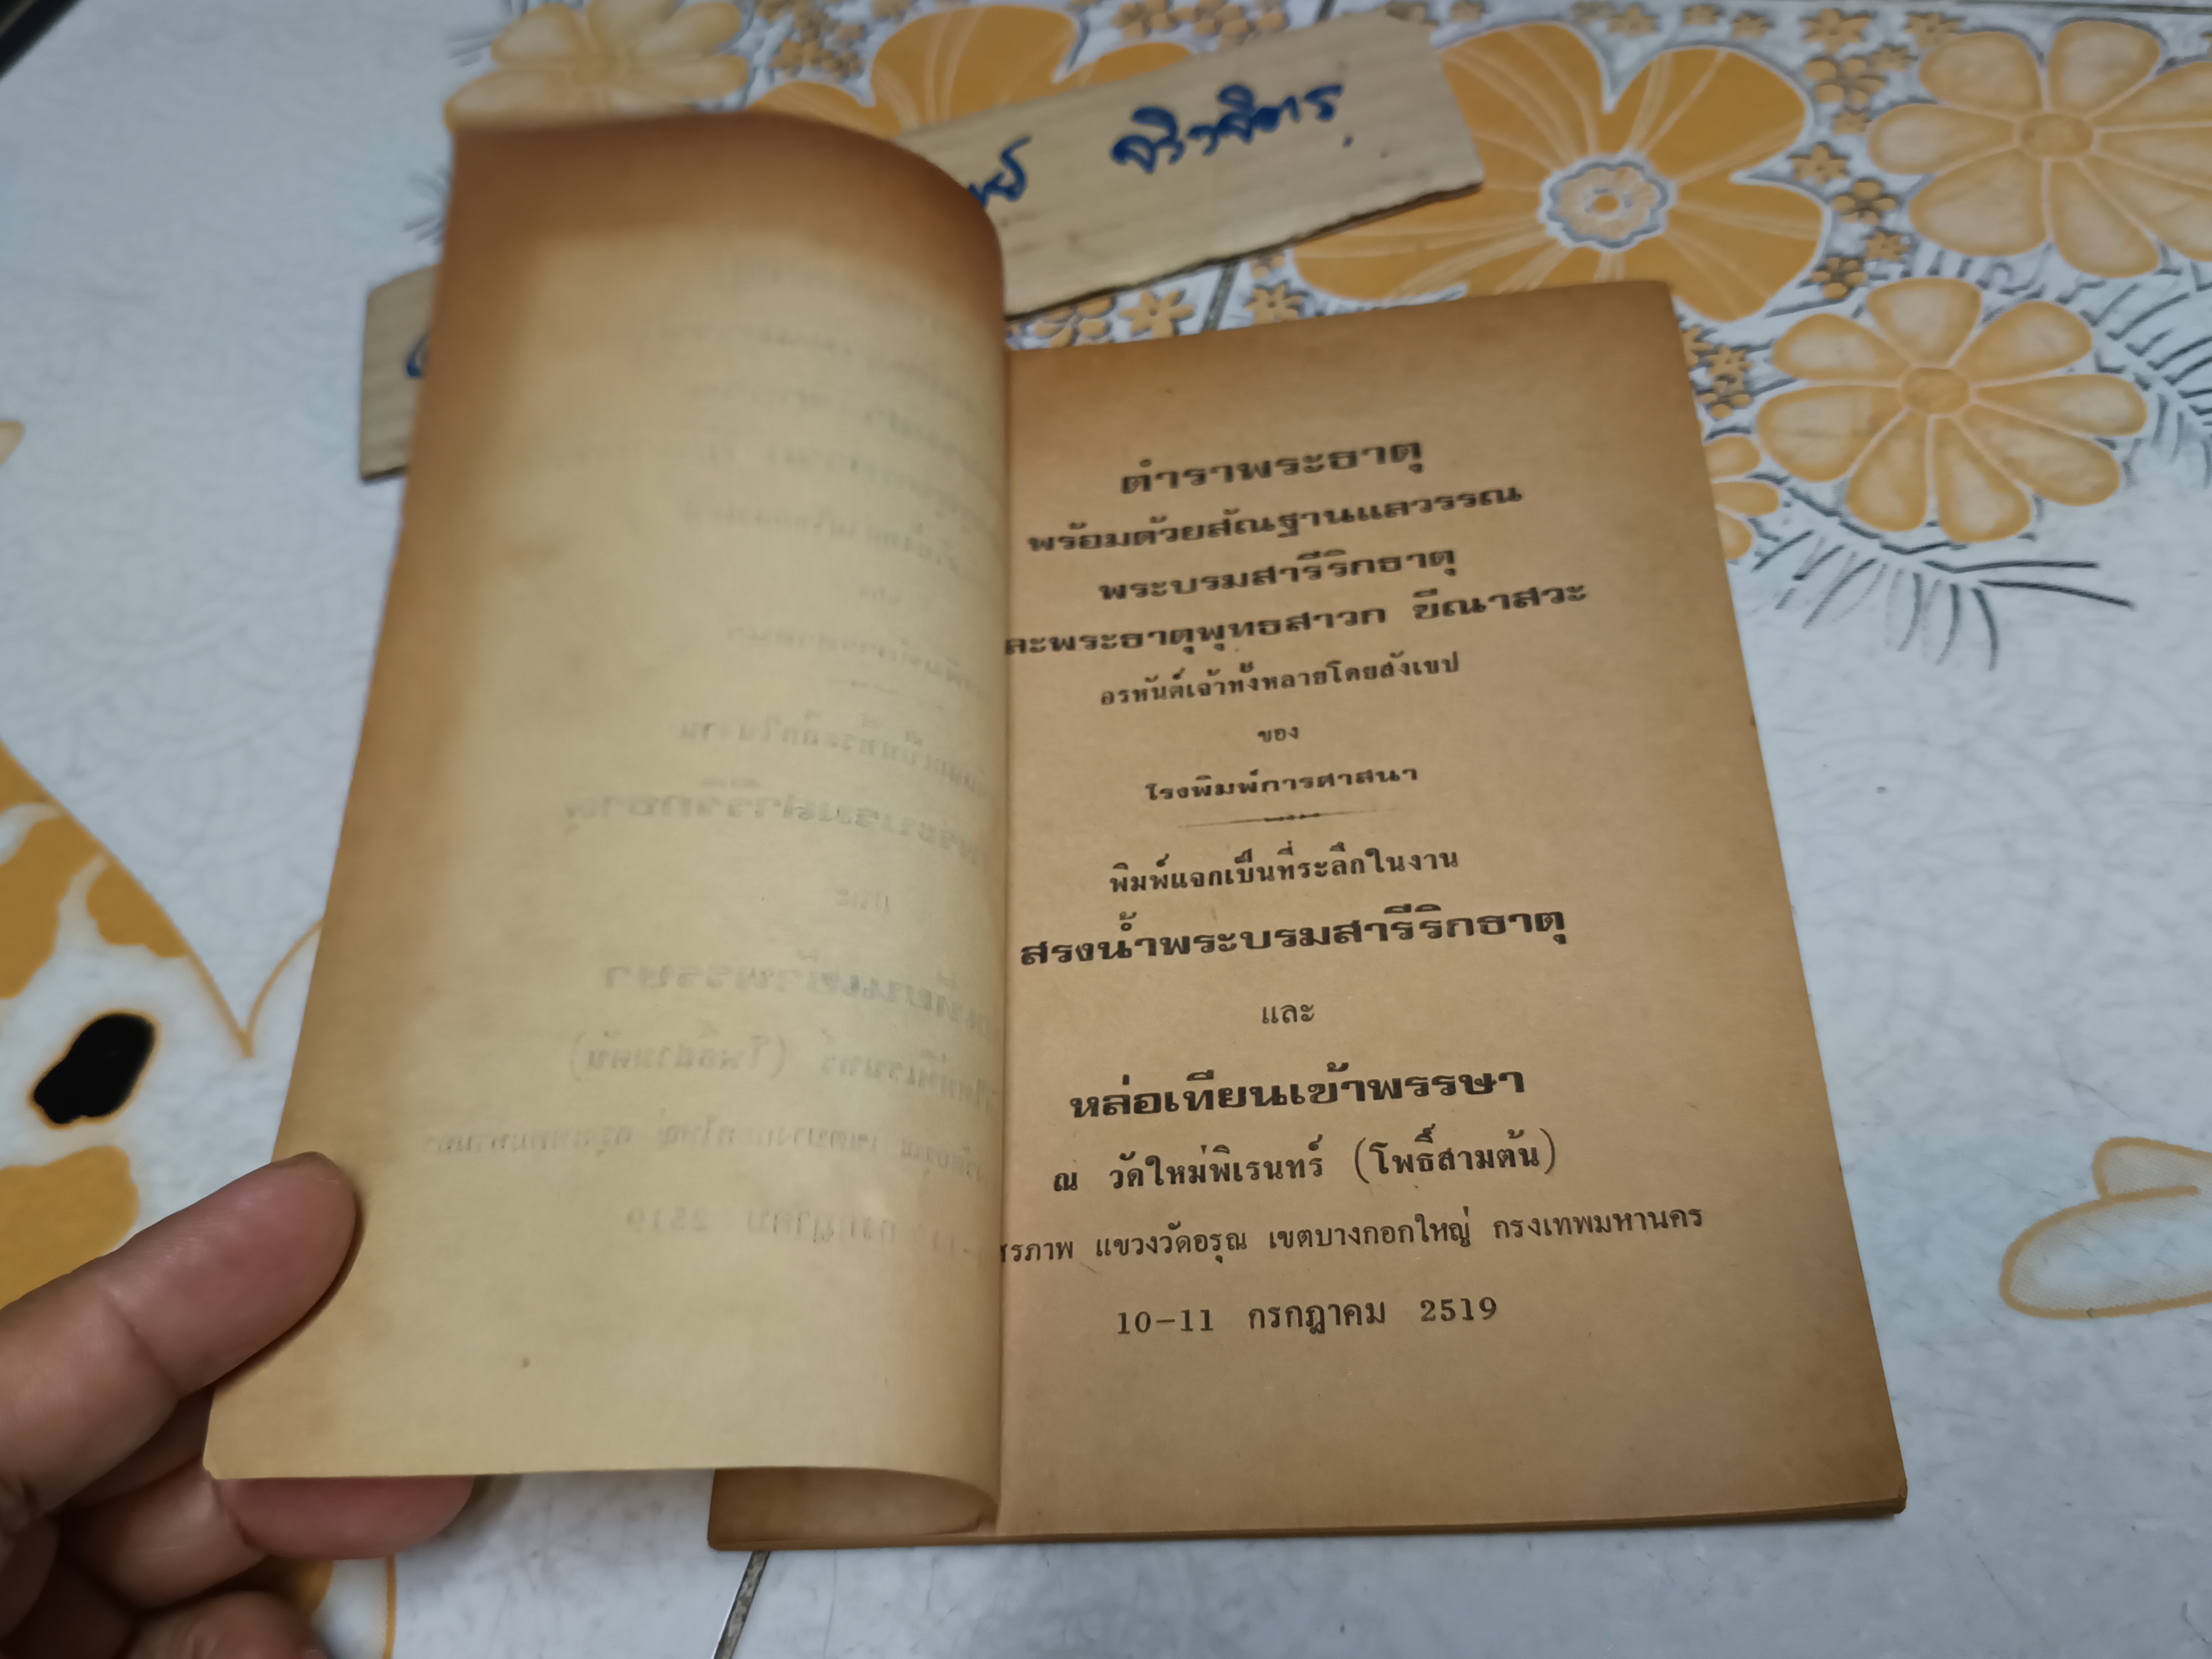 จิวจิตร
ตำราพระธาตุ
พร้อมด้วยสัณฐานแลวรรณ
พระบรมสารีริกธาตุ
ละพระธาตุพุทธสาวก ขีณาสวะ
อรหันต์เจ้าทั้งหลายโดยสังเขป
ของ
โรงพิมพ์การศาสนา
พิมพ์แจกเป็นที่ระลึกในงาน
สรงน้ำพระบรมสารีริกธาตุ
และ
หล่อเทียนเข้าพรรษา
ณ วัดใหม่พิเรนทร์ (โพธิ์สามต้น)
รภาพ แขวงวัดอรุณ เขตบางกอกใหญ่ กรุงเทพมหานคร
10-11 กรกฎาคม 2519